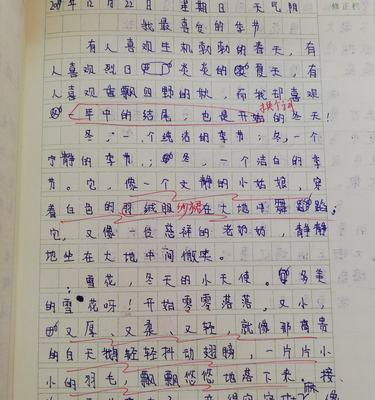 12月22日 星期日 天气阴
修正栏
我最喜爱的季节
有人喜观生机勃勃的春天，有
人喜观烈日炎炎的夏天，有
人喜观四野的秋，而我却喜观
换个词
年中的结尾，也是开始的冬天！
冬，一个纯洁的季节；冬，一个
宁静的季节；冬，一个洁白的季
节。它，像一个文静的小姑娘，穿
着白色的羽绒服纱裙在大地中舞蹈；
它，又像一位慈祥的老奶奶，静静
地坐在大地中间微笑。
雪花，冬天的小天使。多美
的雪花呀！开始零零落落，又小，
又厚、又柔、又轻，就像那高贵
的白天鹅轻轻抖动翅膀，一片片小
小的羽毛，飘飘悠悠地落下来。接